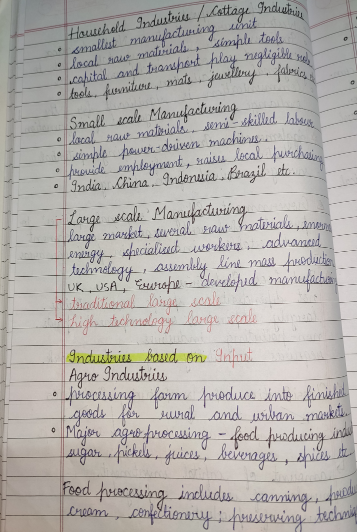 Household Industries / Cottage Industries
smallest manufacturing unit
local raw materials, simple tools
capital and transport play negligible role
tools, furniture, mats, jewellery, fabrics
Small scale Manufacturing
local raw materials, semi-skilled labour
simple power-driven machines.
provide employment, raises local purchasing
India, China, Indonesia, Brazil etc.
Large scale Manufacturing
large market, several raw materials,
energy, specialised workers, advanced
technology, assembly line mass production
UK, USA, Europe - developed
traditional large scale
high technology large scale
Industries based on Input
Agro Industries
processing farm produce into finished
goods for rural and urban markets.
Major agro-processing - food producing
sugar, pickels, juices, beverages, spices etc
Food processing includes canning,
cream, confectionery; preserving